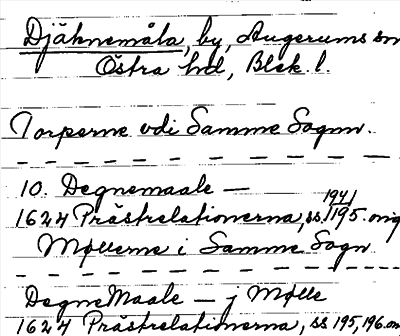 Djäknemåla, by, Augerums sn
Östra hd, Blek. l.
Torperne udi Samme Sognn.
10. Degnemaale —
194/
1624 Prästrelationerna, ss/195. orig
Møllerne i Samme Sogn
Degne Maale — j Mølle
1624 Prästrelationerna, ss 195, 196. or